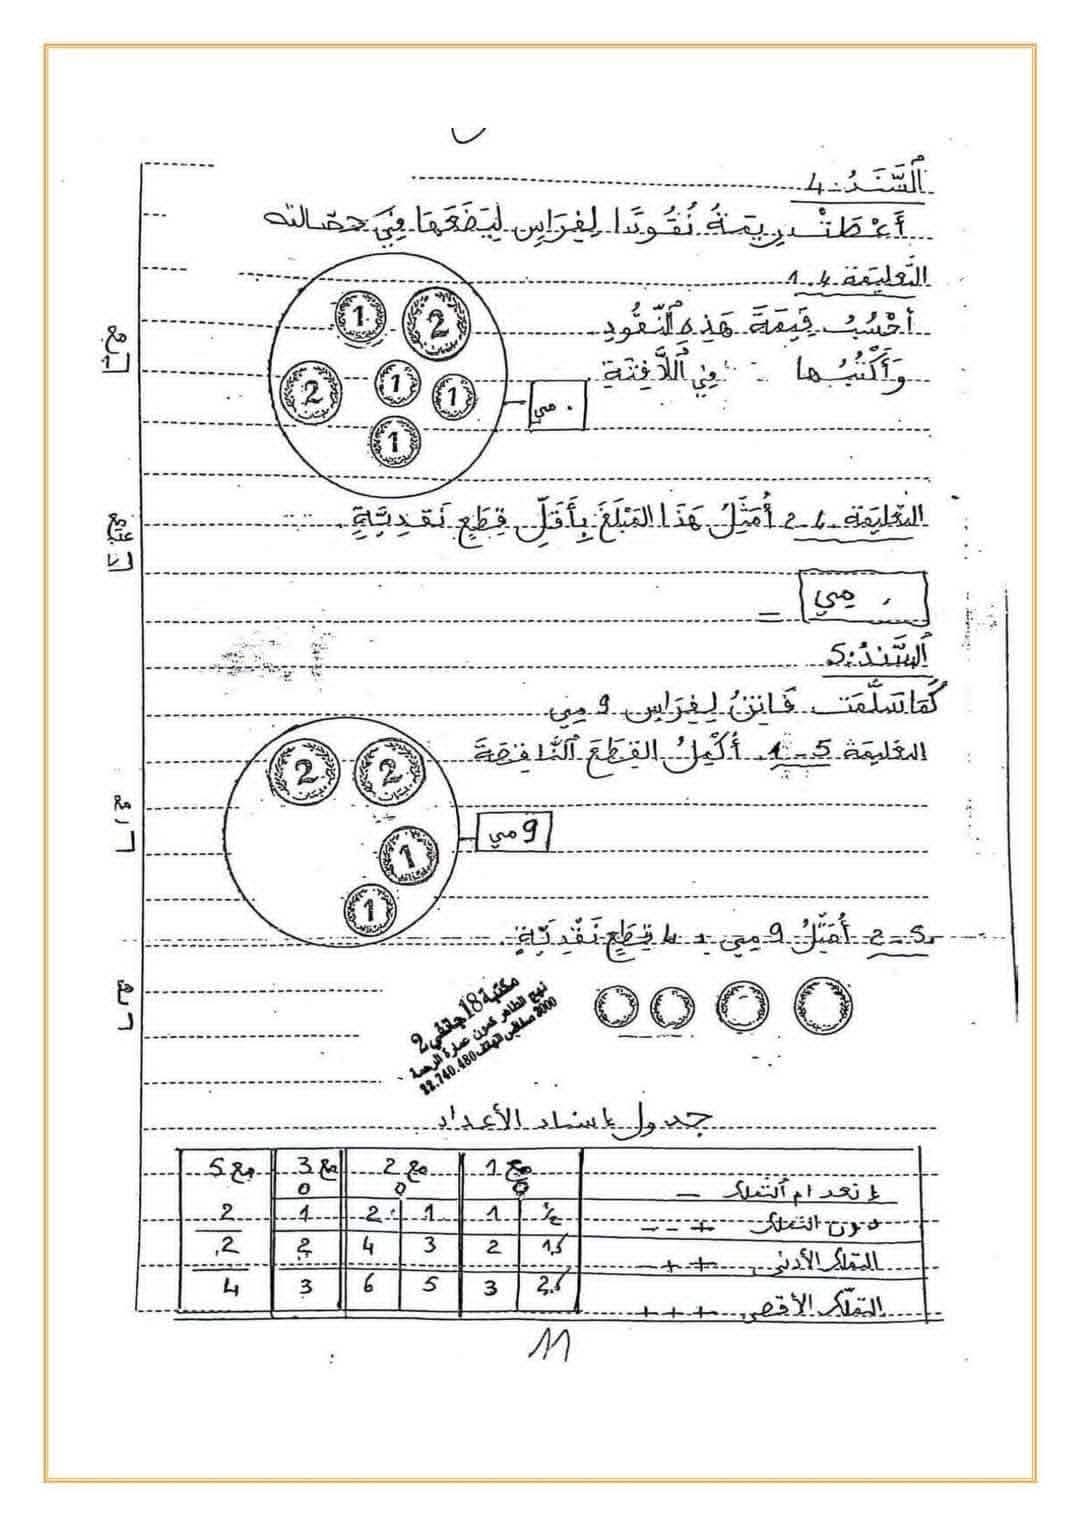 السَّنَدُ: 4
أَعْطَتْ رِيمَةُ نُقُودًا لِفِرَاسٍ لِيَضَعَهَا فِي حصّالته
التّعليمَة 4.1
أَحْسُبُ قِيمَةَ هَذِهِ النُّقُودِ
وَأَكْتُبُها فِي اللَّافِتَةِ
1 2
2 1 1
1
مي
مع 1
التعليمَة 4-2 أُمَثِّلُ هَذَا المَبْلَغَ بِأَقَلِّ قِطَعٍ نَقْدِيَّةٍ.
مي
=
السَّنَدُ: 5
كَمَا سَلَّمَت فَاتِنُ لِفِرَاسٍ 9 مِي
التعليمَة 5-1. أُكْمِلُ القِطَعَ النَّاقِصَةَ
2 2
1
1
9 مي
5-2 أُمَثِّلُ 9 مي بـ 4 قِطَعٍ نَقْدِيَّةٍ.
مكتبة 18 جانفي 2
نهج الطاهر كمون عمارة الرحمة
3000 صفاقس الهاتف
22.740.480
جدول إسناد الأعداد
مع 1 مع 2 مع 3 مع 5
إنعدام التملك - 0 0 0
دون التملك + - - ½ 1 1 2 1 2
التملك الأدنى + + - 1,5 2 3 4 2 2
التملّك الأقصى + + + 2,5 3 5 6 3 4
11